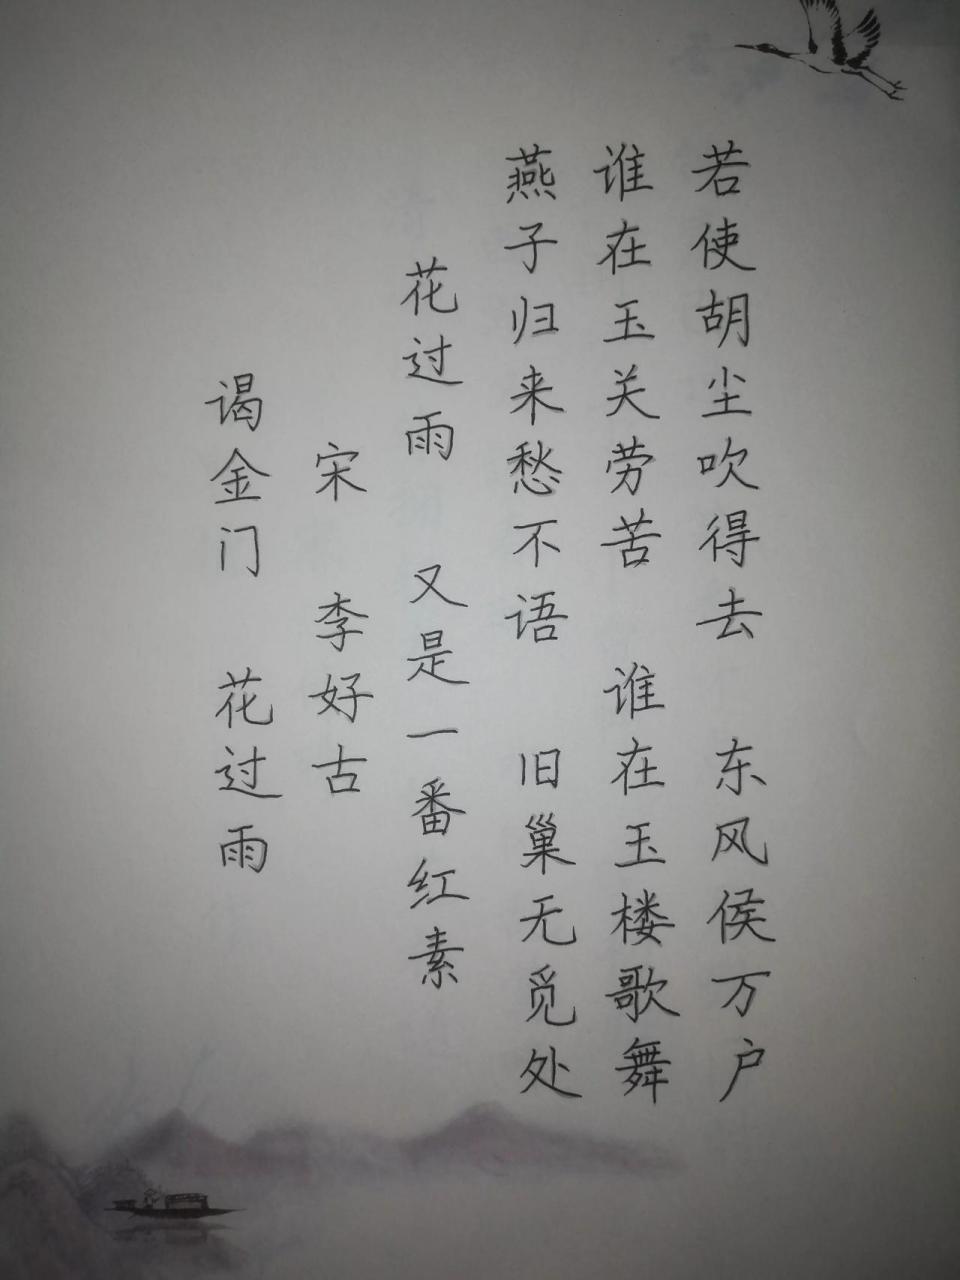 谒金门 花过雨
宋 李好古
花过雨 又是一番红素
燕子归来愁不语 旧巢无觅处
谁在玉关劳苦 谁在玉楼歌舞
若使胡尘吹得去 东风侯万户